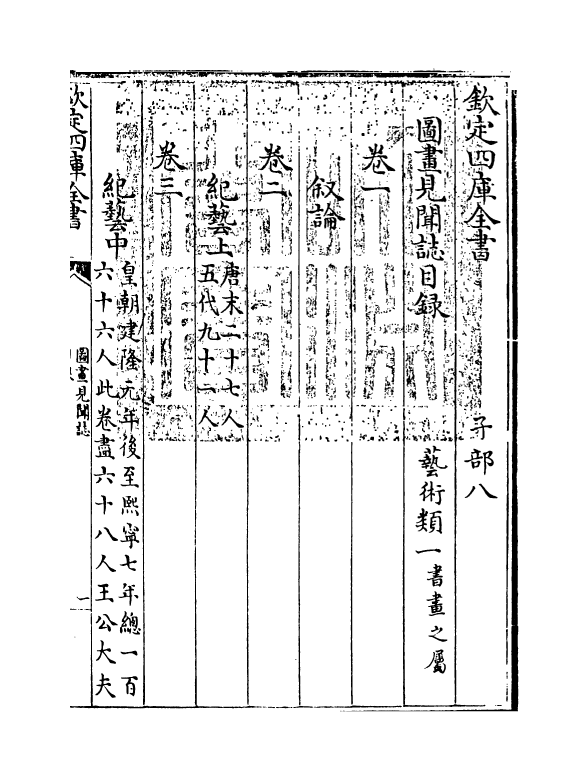 欽定四庫全書　子部八
圖畫見聞誌目錄　藝術類一書畫之屬
卷一
叙論
卷二
紀藝上唐末二十七人
五代九十一人
卷三
紀藝中皇朝建隆元年後至熙寧七年總一百
六十六人此卷盡六十八人王公大夫
欽定四庫全書
圖畫見聞誌
一